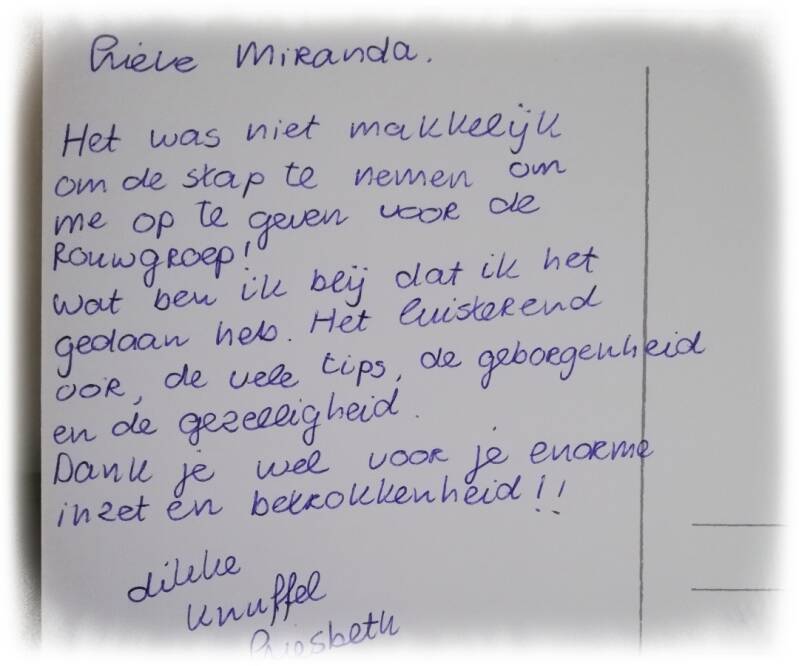 Lieve Miranda.
Het was niet makkelijk
om de stap te nemen om
me op te geven voor de
Rouwgroep!
Wat ben ik blij dat ik het
gedaan heb. Het luisterend
oor, de vele tips, de geboegenheid
en de gezelligheid.
Dank je wel voor je enorme
inzet en betrokkenheid!!
dikke
knuffel
Liesbeth